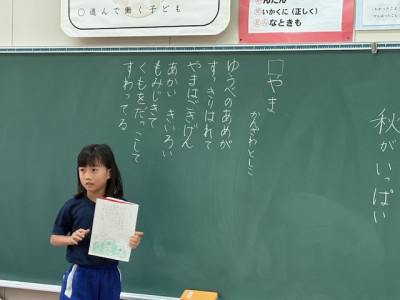 ○進んで働く子ども
いかに（正しく）
なときも
秋がいっぱい
□やま
かんざわとしこ
ゆうべのあめが
すっきりはれて
やまはごきげん
あかい きいろい
もみじきて
くもをだっこして
すわってる